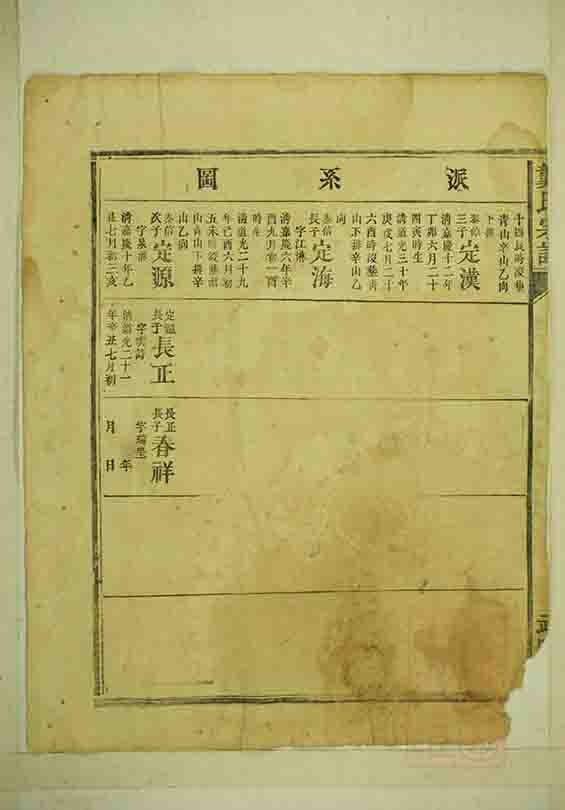 派系圖
十四長時沒葬
青山辛山乙向
下排
泰信
三子
定漢
清嘉慶十二年
丁卯六月二十
四寅時生
清道光三十年
庚戌七月二十
六酉時沒葬青
山下排辛山乙
向
泰信
長子
定海
字江濤
清嘉慶六年辛
酉九月初一酉
時生
清道光二十九
年己酉六月初
五未時沒葬郝
山青山下排辛
山乙向
泰信
次子
定源
清嘉慶十年乙
丑七月初二亥
長子
長正
字雲
清道光二十一
年辛丑七月初
長正
長子
春祥
字瑞
年
月 日
氏宗譜